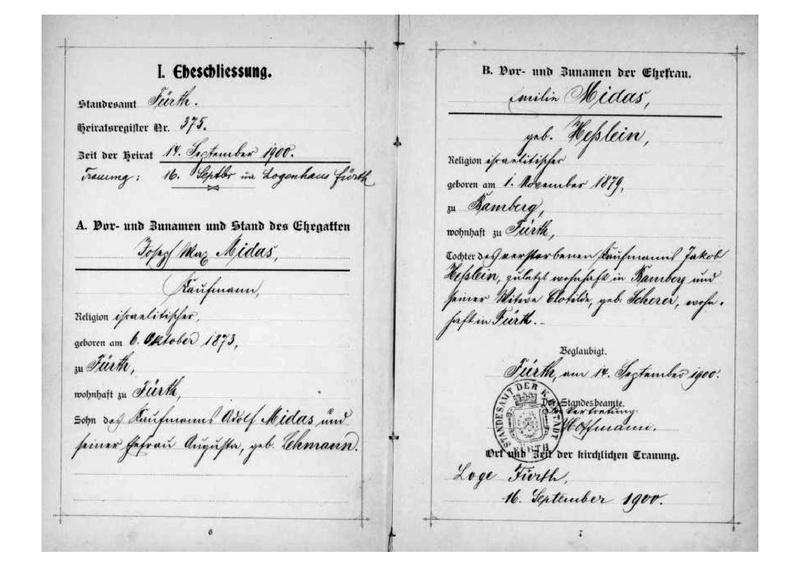 I. Eheschliessung.
Standesamt Fürth.
Heiratsregister Nr. 375.
Zeit der Heirat 14. September 1900.
Trauung: 16. Septbr im Logenhaus Fürth
A. Vor- und Zunamen und Stand des Ehegatten
Josef Max Midas,
Kaufmann,
Religion israelitischer,
geboren am 6. Oktober 1873,
zu Fürth,
wohnhaft zu Fürth,
Sohn des Kaufmanns Adolf Midas und
seiner Ehefrau Augusta, geb. Lehmann.
6
B. Vor- und Zunamen der Ehefrau.
Emilie Midas,
geb. Heßlein,
Religion israelitischer
geboren am 1. November 1879,
zu Bamberg,
wohnhaft zu Fürth,
Tochter des verstorbenen Kaufmanns Jakob
Heßlein, zuletzt wohnhaft in Bamberg und
seiner Witwe Clotilde, geb. Scherer, wohn-
haft in Fürth.
Beglaubigt.
Fürth, am 14. September 1900.
Der Standesbeamte.
In Vertretung:
Hoffmann.
STANDESAMT DER K. B. STADT FÜRTH
Ort und Zeit der kirchlichen Trauung.
Loge Fürth,
16. September 1900.
7